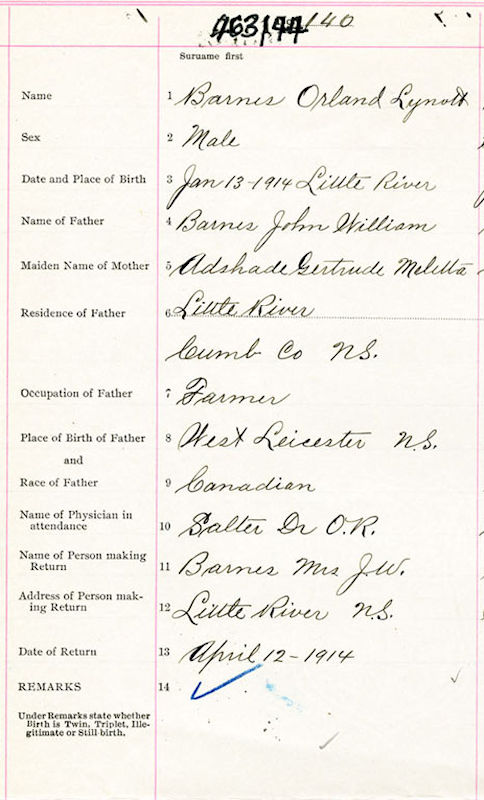 463144 140
Suruame first
Name 1 Barnes Orland Lynott
Sex 2 Male
Date and Place of Birth 3 Jan 13-1914 Little River
Name of Father 4 Barnes John William
Maiden Name of Mother 5 Adshade Gertrude Meletta
Residence of Father 6 Little River
Cumb Co N.S.
Occupation of Father 7 Farmer
Place of Birth of Father 8 West Leicester N.S.
and
Race of Father 9 Canadian
Name of Physician in
attendance 10 Salter Dr O.R.
Name of Person making
Return 11 Barnes Mrs J.W.
Address of Person mak-
ing Return 12 Little River N.S.
Date of Return 13 April 12-1914
REMARKS 14
Under Remarks state whether
Birth is Twin, Triplet, Ille-
gitimate or Still-birth.